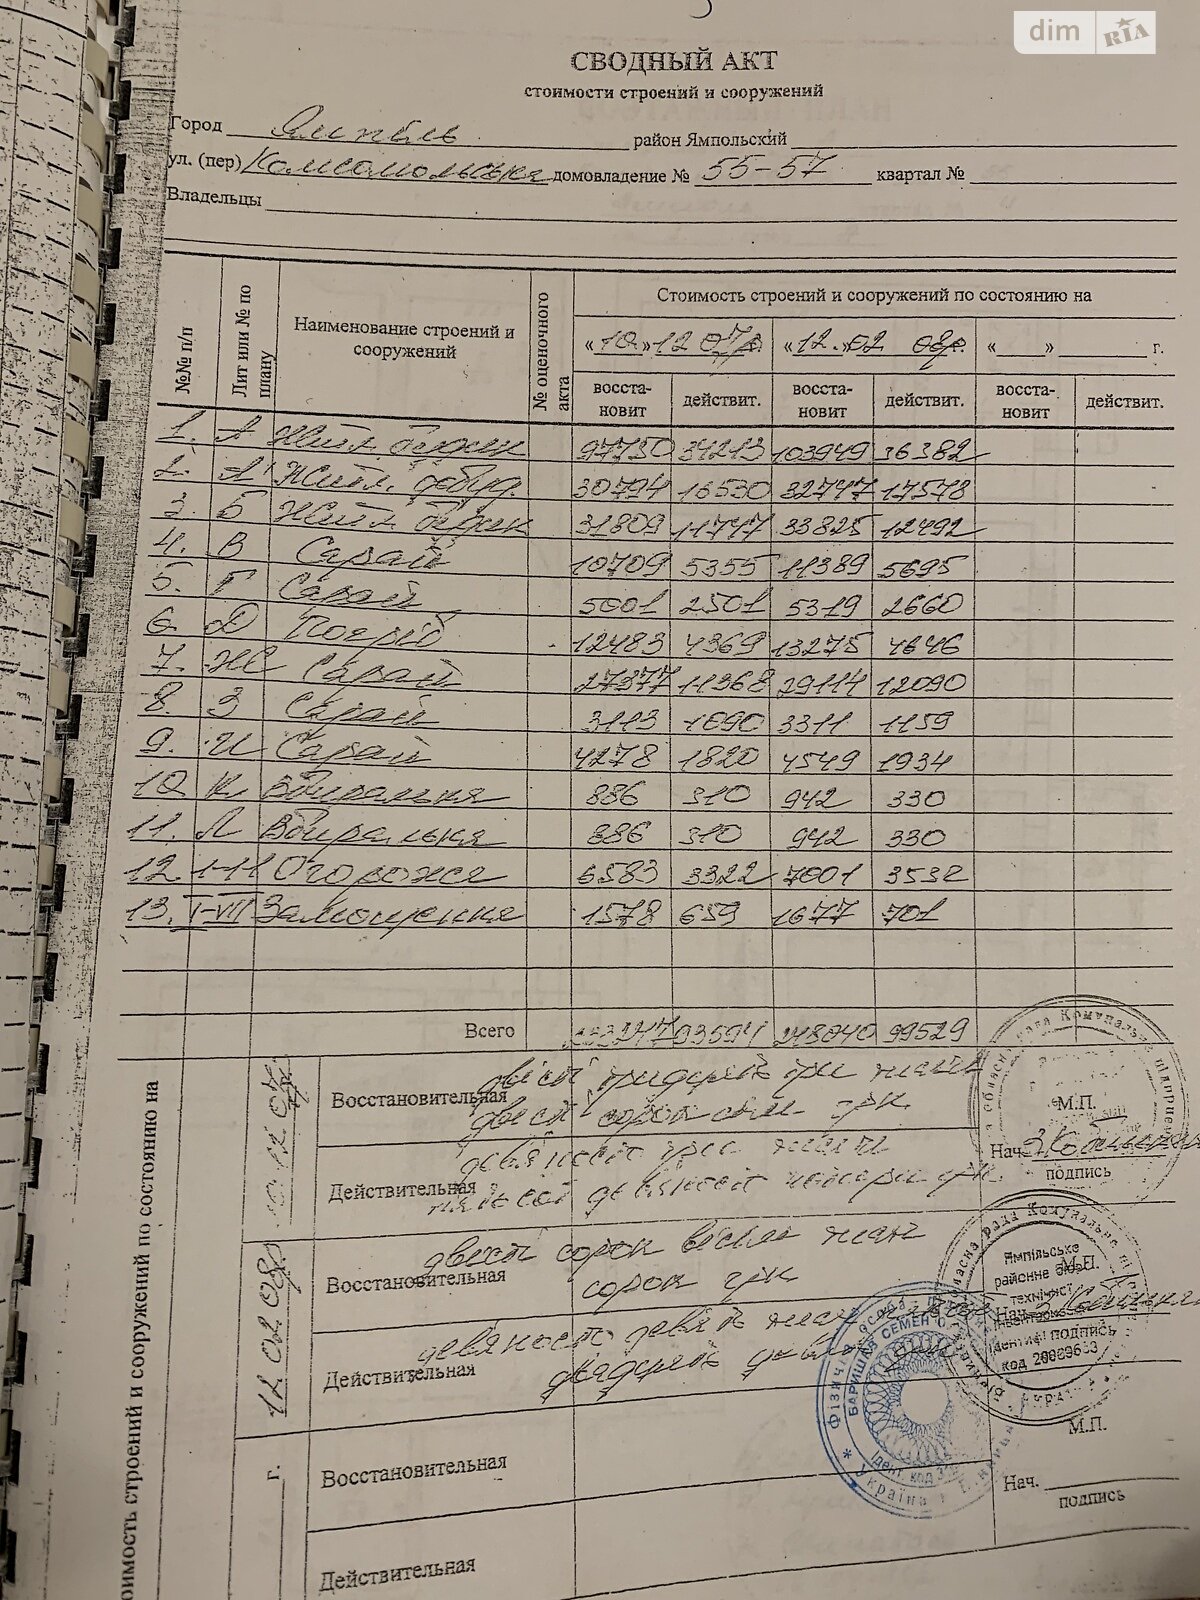 dim RIA
СВОДНЫЙ АКТ
стоимости строений и сооружений
Город Ямпіль район Ямпольский
ул. (пер) Комсомольська домовладение № 55-57 квартал №
Владельцы
№№ п/п
Лит или № по плану
Наименование строений и сооружений
№ оценочного акта
Стоимость строений и сооружений по состоянию на
«10.» 12 07р. «12.» 02 08р. «___» ________ г.
восста-новит действит. восста-новит действит. восста-новит действит.
1. А Житл. будинк 97750 34213 103949 36382
2. А' Житл. добуд. 30794 16530 32747 17578
3. Б Житл. будинк 31809 11747 33825 12492
4. В Сарай 10709 5355 11389 5695
5. Г Сарай 5001 2501 5319 2660
6. Д Погріб 12483 4369 13275 4646
7. Ж Сарай 27377 11368 29114 12090
8. З Сарай 3113 1090 3311 1159
9. И Сарай 4278 1820 4549 1934
10. К Вбиральня 886 310 942 330
11. Л Вбиральня 886 310 942 330
12. 1-11 Огорожа 6583 3322 7001 3532
13. I-VII Замощення 1578 659 1677 701
Всего 233247 93594 248040 99529
стоимость строений и сооружений по состоянию на
10.12.07р.
Восстановительная двісті тридцять три тисячі
двісті сорок сім грн.
М.П.
Действительная девяносто три тисячі
п'ятсот девяносто чотири грн.
Нач.
подпись
12.02.08р
Восстановительная двісті сорок вісім тисяч
сорок грн
М.П.
Действительная девяносто девять тисяч п'ятсот
двадцять девять грн
Нач.
подпись
Ямпільське
районне бюро
технічної
інвентаризації
Ідентиф
код 20089633
Фізична особа
БАРИШАК СЕМЕН
Ідент. код
Україна
г.
Восстановительная
М.П.
Действительная
Нач.
подпись